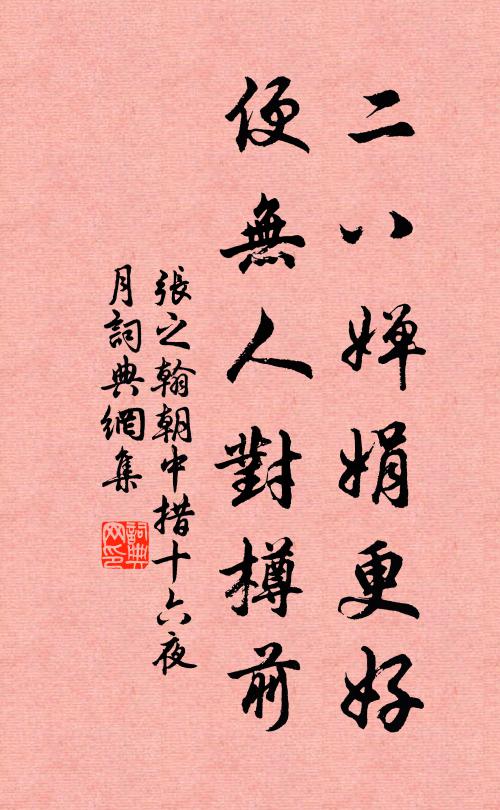 二八嬋娟更好
便無人對樽前
張之翰朝中措十六夜
月詞典網集
詞典
网印